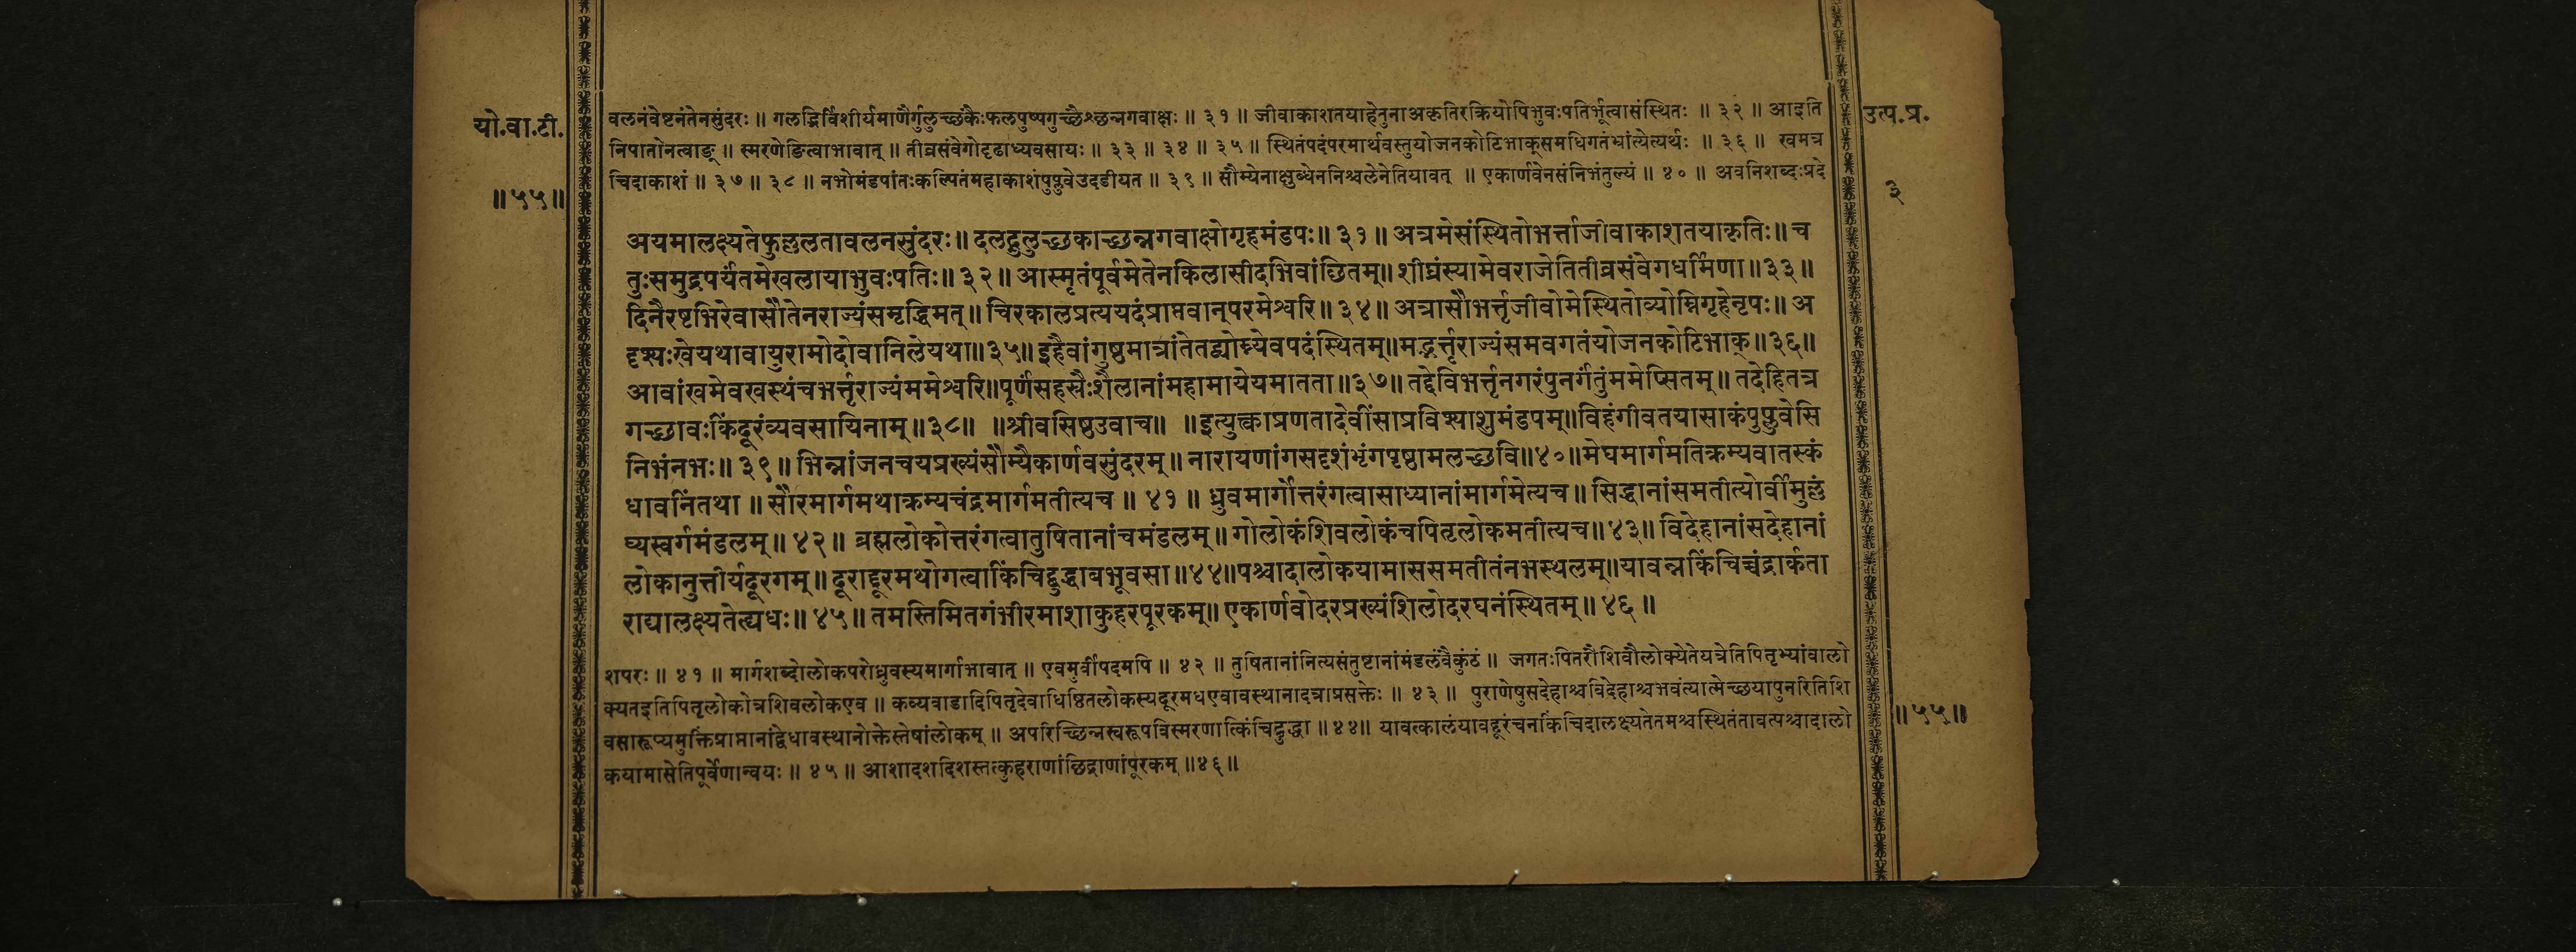 यो.वा.टी.
॥५५॥
वलनंवेष्टनंतेनसुंदरः ॥ गलद्भिर्विशीर्यमाणैर्गुलुच्छकैःफलपुष्पगुच्छैश्छन्नगवाक्षः ॥ ३१ ॥ जीवाकाशतयाहेतुनाअकृतिरक्रियोपिभुवःपतिर्भूत्वासंस्थितः ॥ ३२ ॥ आइति
निपातोनत्वाङ् ॥ स्मरणेङित्वाभावात् ॥ तीव्रसंवेगोदृढाध्यवसायः ॥ ३३ ॥ ३४ ॥ ३५ ॥ स्थितंपदंपरमार्थवस्तुयोजनकोटिभाक्समधिगतंभ्रांत्येत्यर्थः ॥ ३६ ॥ खमत्र
चिदाकाशं ॥ ३७ ॥ ३८ ॥ नभोमंडपांतःकल्पितंमहाकाशंपुप्लुवेउदडीयत ॥ ३९ ॥ सौम्येनाक्षुब्धेननिश्चलेनेतियावत् ॥ एकार्णवेनसंनिभंतुल्यं ॥ ४० ॥ अवनिशब्दःप्रदे
उत्प.प्र.
३
अयमालक्ष्यतेफुल्ललतावलनसुंदरः॥ दलद्गुलुच्छकाच्छन्नगवाक्षोगृहमंडपः॥ ३१ ॥ अत्रमेसंस्थितोभर्त्ताजीवाकाशतयाकृतिः॥ च
तुःसमुद्रपर्यंतमेखलायाभुवःपतिः॥ ३२ ॥ आस्मृतंपूर्वमेतेनकिलासीदभिवांछितम्॥ शीघ्रंस्यामेवराजेतितीव्रसंवेगधर्मिणा ॥३३॥
दिनैरष्टभिरेवासौतेनराज्यंसमृद्धिमत्॥ चिरकालप्रत्ययदंप्राप्तवान्परमेश्वरि॥ ३४॥ अत्रासौभर्त्तृजीवोमेस्थितोव्योम्निगृहेनृपः॥ अ
दृश्यःखेयथावायुरामोदोवानिलेयथा॥३५॥ इहैवांगुष्ठमात्रांतेतद्व्योम्न्येवपदंस्थितम्॥मद्भर्त्तृराज्यंसमवगतंयोजनकोटिभाक्॥३६॥
आवांखमेवखस्थंचभर्त्तृराज्यंममेश्वरि॥पूर्णंसहस्रैःशैलानांमहामायेयमातता॥३७॥ तद्देविभर्त्तृनगरंपुनर्गंतुंममेप्सितम्॥ तदेहितत्र
गच्छावःकिंदूरंव्यवसायिनाम्॥३८॥ ॥श्रीवसिष्ठउवाच॥ ॥इत्युक्त्वाप्रणतादेवींसाप्रविश्याशुमंडपम्॥विहंगीवतयासाकंपुप्लुवेसि
निभंनभः॥ ३९॥ भिन्नांजनचयप्रख्यंसौम्यैकार्णवसुंदरम्॥ नारायणांगसदृशंभृंगपृष्ठामलच्छवि॥४०॥मेघमार्गमतिक्रम्यवातस्कं
धावनिंतथा ॥ सौरमार्गमथाक्रम्यचंद्रमार्गमतीत्यच ॥ ४१ ॥ ध्रुवमार्गोत्तरंगत्वासाध्यानांमार्गमेत्यच॥ सिद्धानांसमतीत्योर्वीमुल्लं
घ्यस्वर्गमंडलम्॥ ४२॥ ब्रह्मलोकोत्तरंगत्वातुषितानांचमंडलम्॥ गोलोकंशिवलोकंचपितृलोकमतीत्यच॥४३॥ विदेहानांसदेहानां
लोकानुत्तीर्यदूरगम्॥ दूराद्दूरमथोगत्वाकिंचिद्बुद्धाबभूवसा॥४४॥पश्चादालोकयामाससमतीतंनभस्थलम्॥यावन्नकिंचिच्चंद्रार्कता
राद्यालक्ष्यतेत्यधः॥ ४५॥ तमस्तिमितगंभीरमाशाकुहरपूरकम्॥ एकार्णवोदरप्रख्यंशिलोदरघनंस्थितम्॥ ४६॥
शपरः ॥ ४१ ॥ मार्गशब्दोलोकपरोध्रुवस्यमार्गाभावात् ॥ एवमुर्वीपदमपि ॥ ४२ ॥ तुषितानांनित्यसंतुष्टानांमंडलंवैकुंठं ॥ जगतःपितरौशिवौलोक्येतेयत्रेतिपितृभ्यांवालो
क्यतइतिपितृलोकोत्रशिवलोकएव ॥ कव्यवाडादिपितृदेवाधिष्ठितलोकस्यदूरमधएवावस्थानादत्राप्रसक्तेः ॥ ४३ ॥ पुराणेषुसदेहाश्चविदेहाश्चभवंत्यात्मेच्छयापुनरितिशि
वसारूप्यमुक्तिप्राप्तानांद्वेधावस्थानोक्तेस्तेषांलोकम् ॥ अपरिच्छिन्नस्वरूपविस्मरणात्किंचिद्बुद्धा ॥४४॥ यावत्कालंयावद्दूरंचनकिंचिदालक्ष्यतेतमश्चस्थितंतावत्पश्चादालो
कयामासेतिपूर्वेणान्वयः ॥ ४५॥ आशादशदिशस्तत्कुहराणांछिद्राणांपूरकम् ॥४६॥
॥५५॥